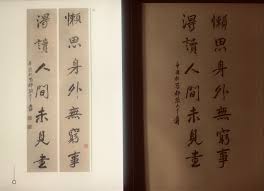 懶思身外無窮事
得讀人間未見書
懶思身外無窮事
得讀人間未見書